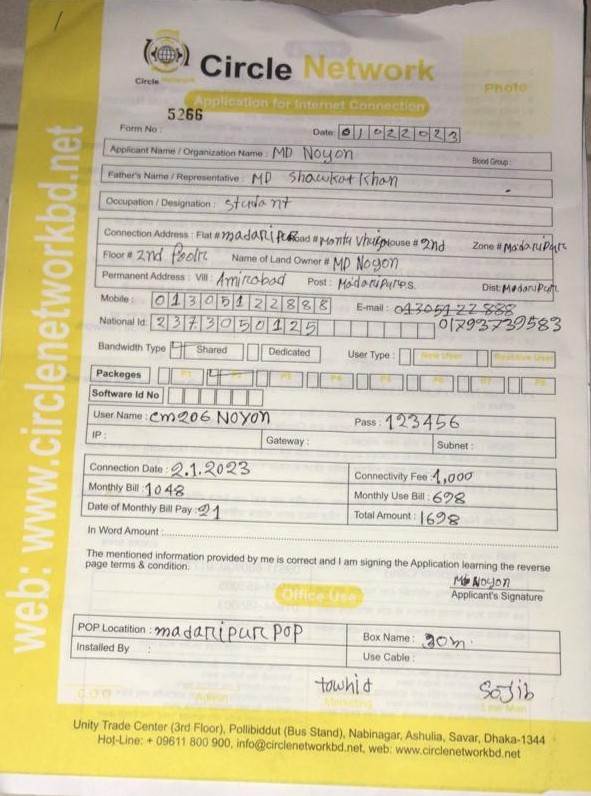 Circle Network
Circle Network
Photo
Application for Internet Connection
5266
Form No : Date: 01022023
Applicant Name / Organization Name : MD Noyon Blood Group :
Father's Name / Representative : MD Shawkat Khan
Occupation / Designation : Student
Connection Address : Flat # madaripur Road # House # 2nd Zone # Madaripur
Floor # 2nd Name of Land Owner # MD Noyon
Permanent Address : Vill : Amirabad Post : Madaripur Dist: Madaripur
Mobile : 01305122888 E-mail : 01305122888
National Id: 2373050125 01793739583
Bandwidth Type Shared Dedicated User Type : New User
Packeges P1 P2 P3 P4 P5 P6 P7 P8
Software Id No
User Name : cm206 NOYON Pass : 123456
IP : Gateway : Subnet :
Connection Date : 2.1.2023 Connectivity Fee : 1,000
Monthly Bill : 1048 Monthly Use Bill : 698
Date of Monthly Bill Pay : 21 Total Amount : 1698
In Word Amount :
The mentioned information provided by me is correct and I am signing the Application learning the reverse
page terms & condition.
MD Noyon
Applicant's Signature
Office Use
POP Locatition : madaripur POP Box Name : 30m.
Installed By : Use Cable :
towhid Sojib
C.O.O Admin Marketing Line Man
Unity Trade Center (3rd Floor), Pollibiddut (Bus Stand), Nabinagar, Ashulia, Savar, Dhaka-1344
Hot-Line: + 09611 800 900, info@circlenetworkbd.net, web: www.circlenetworkbd.net
web: www.circlenetworkbd.net